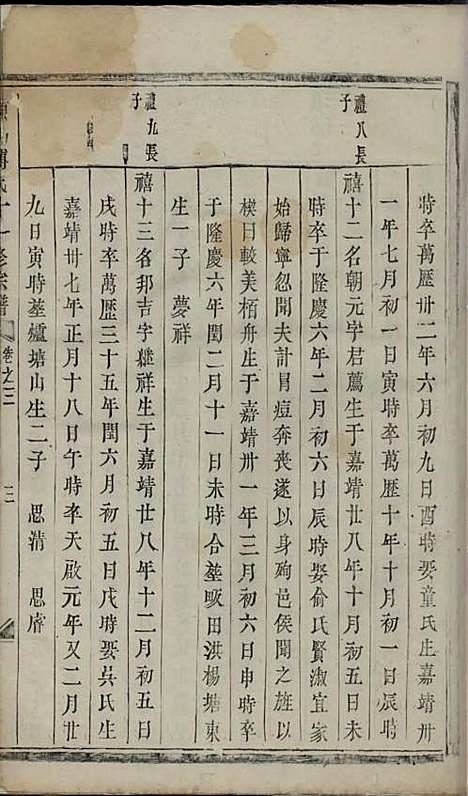 時卒萬歷卅二年六月初九日酉時娶童氏生嘉靖卅
一年七月初一日寅時卒萬歷十年十月初一日辰時
禮八長子
禧十二名朝元字君薦生于嘉靖廿八年十月初五日未
時卒于隆慶六年二月初六日辰時娶俞氏賢淑宜家
始歸寧忽聞夫訃冒痘奔喪遂以身殉邑侯聞之旌以
楔曰較美栢舟生于嘉靖卅一年三月初六日申時卒
于隆慶六年閏二月十一日未時合塟畈田洪楊塘東
生一子 夢祥
禮九長子
禧十三名邦吉字繼祥生于嘉靖廿八年十二月初五日
戌時卒萬歷三十五年閏六月初五日戌時娶吳氏生
嘉靖卅七年正月十八日午時卒天啟元年又二月廿
九日寅時塟爐塘山生二子 思清 思睿
氏十一修宗譜
卷之三
三